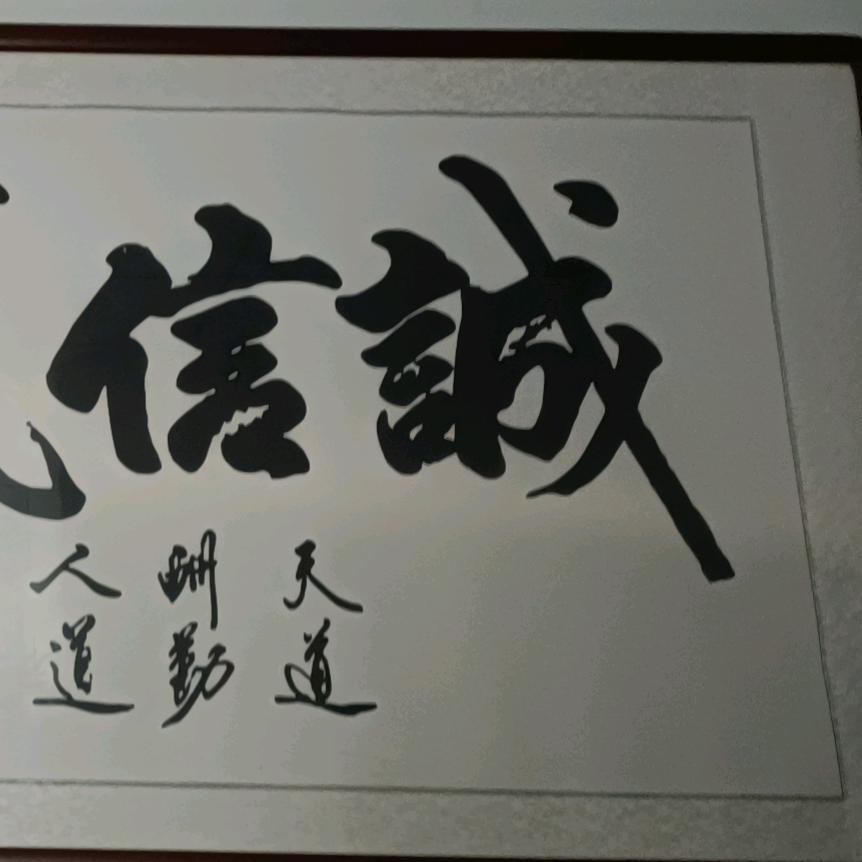 誠信
天道
酬勤
人道